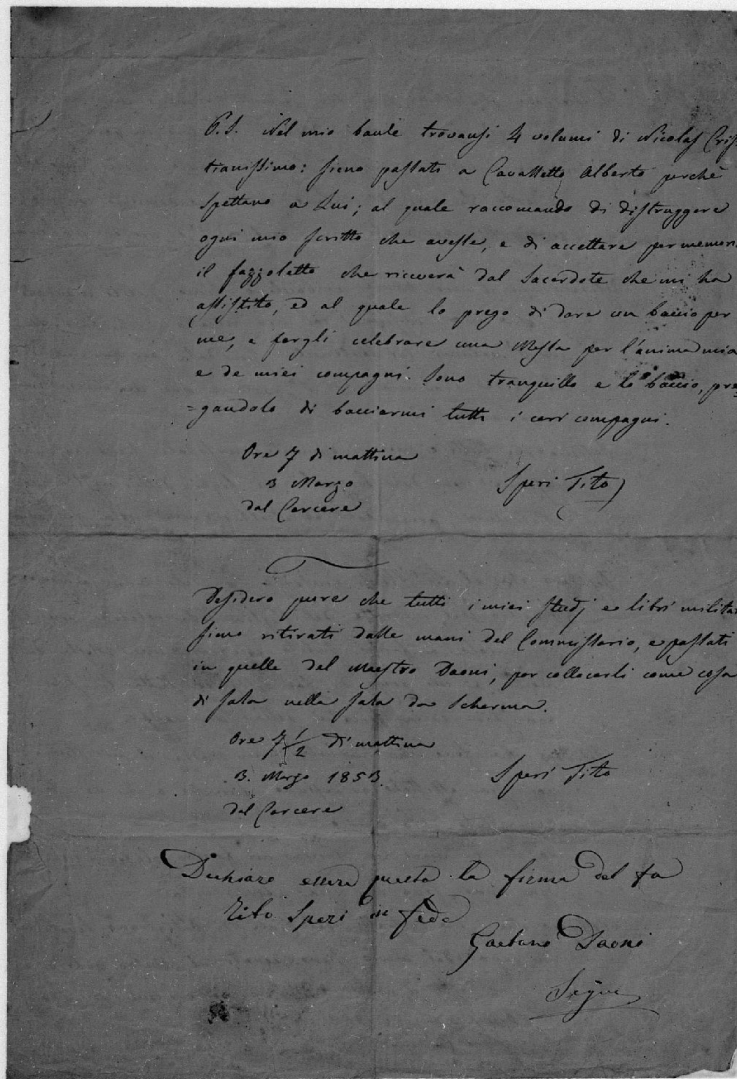 P.S. Nel mio baule trovansi 4 volumi di Nicolas Cris
tianissimo: sieno passati a Cavalletto Alberto perchè
spettano a Lui; al quale raccomando di distruggere
ogni mio scritto che avesse, e di accettare per memori
il fazzoletto che riceverà dal Sacerdote che mi ha
assistito, ed al quale lo prego di dare un baccio per
me, e fargli celebrare una Messa per l'anima mia
e de miei compagni. Sono tranquillo e lo baccio, pre
=gandolo di bacciarmi tutti i cari compagni.
Ore 7 di mattina
3 Marzo
dal Carcere
Speri Tito
Desidero pure che tutti i miei studj e libri milita
sieno ritirati dalle mani del Commissario, e passati
in quelle del Maestro Daoni, per collocarli come cosa
di sala nella sala da Scherma.
Ore 7 1/2 di mattina
3. Marzo 1853
dal Carcere
Speri Tito
Dichiaro essere questa la firma del fu
Tito Speri in fede
Gaetano Daoni
Segue